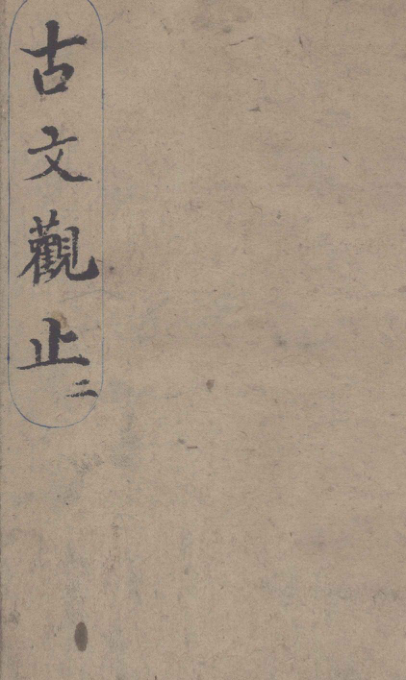 古文觀止二